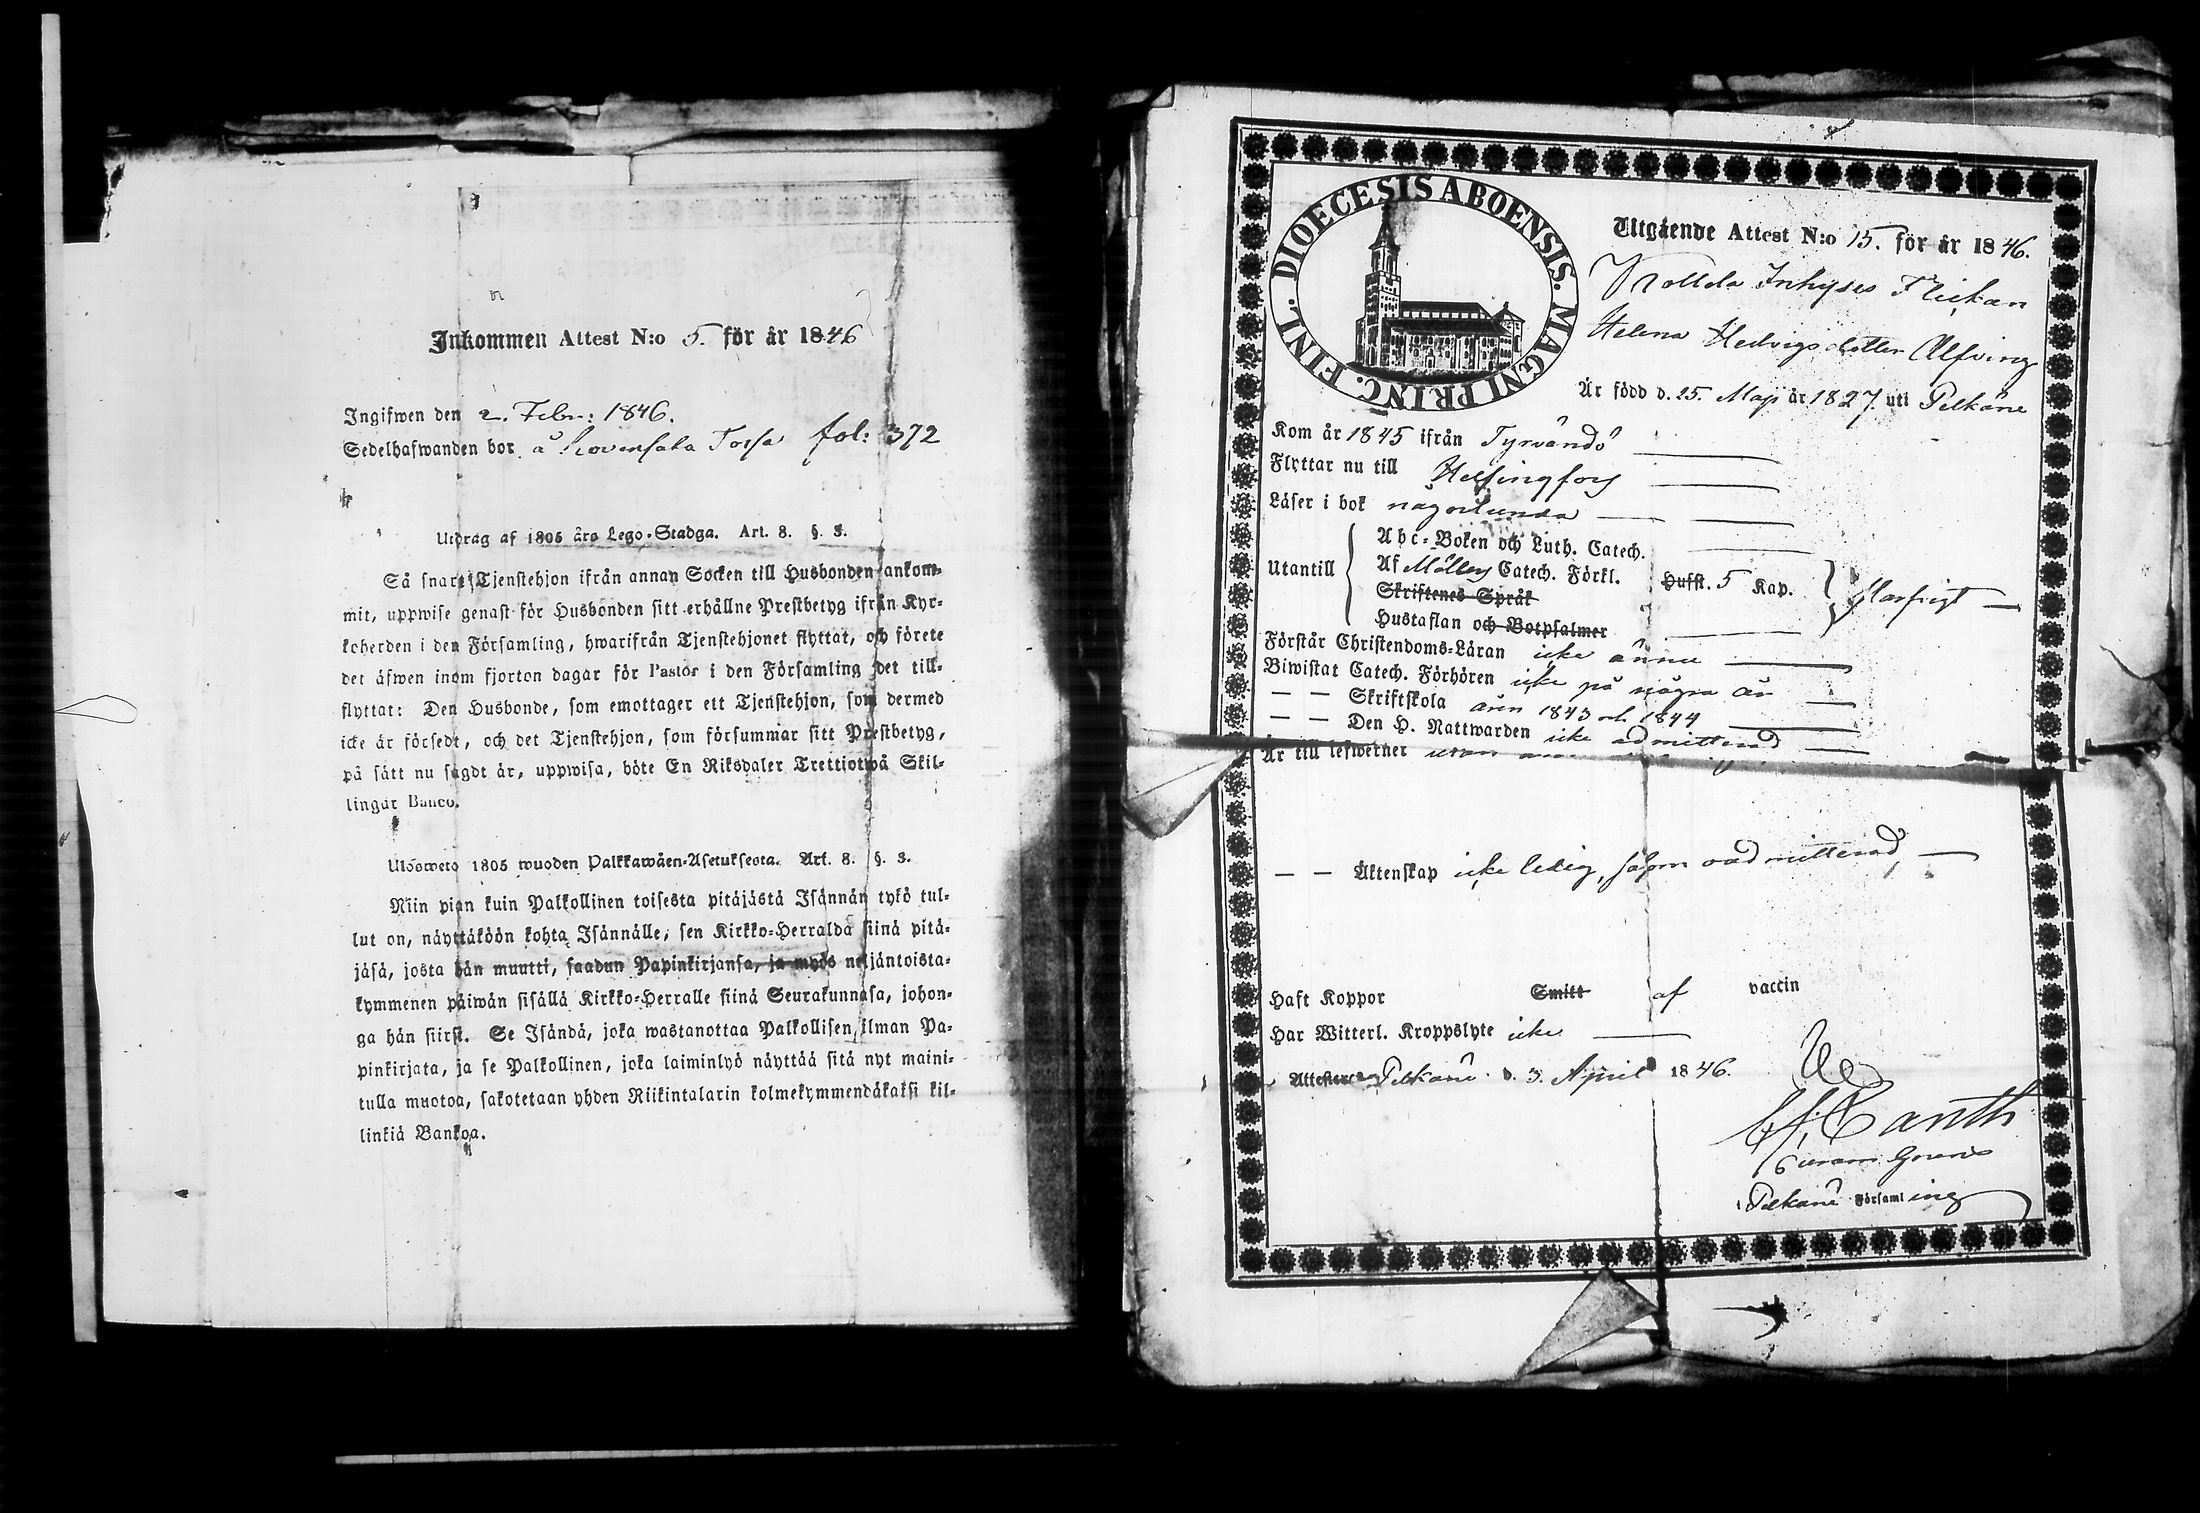 Inkommen Attest N:o 5. för år 1846
Ingifwen den 2. Febr: 1846.
Sedelhafwanden bor å fol: 372
Utdrag af 1805 års Lego-Stadga. Art. 8. §. 3.
Så snart Tjenstehjon ifrån annan Socken till Husbonden ankom-
mit, uppwise genast för Husbonden sitt erhållne Prestbetyg ifrån Kyr-
koherden i den Församling, hwarifrån Tjenstehjonet flyttat, och förete
det äfwen inom fjorton dagar för Pastor i den Församling det till-
flyttat: Den Husbonde, som emottager ett Tjenstehjon, som dermed
icke är försedt, och det Tjenstehjon, som försummar sitt Prestbetyg,
på sätt nu sagdt är, uppwisa, böte En Riksdaler Trettiotwå Skil-
lingar Banco.
Ulosweto 1805 wuoden Palkkawäen-Asetuksesta. Art. 8. §. 3.
Niin pian kuin Palkollinen toisesta pitäjästä Isännän tykö tul-
lut on, näyttäköön kohta Isännälle, sen Kirkko-Herralda siinä pitä-
jäsä, josta hän muutti, saadun Papinkirjansa, ja myös neljäntoista-
kymmenen päiwän sisällä Kirkko-Herralle siinä Seurakunnasa, johon-
ga hän siirsi. Se Isändä, joka wastanottaa Palkollisen ilman Pa-
pinkirjata, ja se Palkollinen, joka laiminlyö näyttää sitä nyt maini-
tulla muotoa, sakotetaan yhden Riikintalarin kolmekymmendäkaksi kil-
linkiä Bankoa.
DIOECESIS ABOENSIS. MAGNI PRINC. FINL.
Utgående Attest N:o 15. för år 1846.
Inhyses Flickan
Helena Hedvigsdotter Alfving
Är född d. 25. Maji år 1827. uti Pelkäne
Kom år 1845 ifrån Tyrvändö
Flyttar nu till Helsingfors
Läser i bok någorlunda
Utantill
Abc-Boken och Luth. Catech.
Af Möllers Catech. Förkl. Husst. 5 Kap.
Skriftenes Språk
Hustaflan och Botpsalmer
Förstår Christendoms-Läran icke ännu
Biwistat Catech. Förhören icke på några år
— — Skriftskola åren 1843 och 1844
— — Den H. Nattwarden icke admitterad
Är till lefwernet utan
— — Äktenskap icke ledig, såsom oadmitterad
Haft Koppor Smitt af vaccin
Har Witterl. Kroppslyte icke
Attesterar Pelkäne d. 3. April 1846.
Canth
Pelkäne Församling